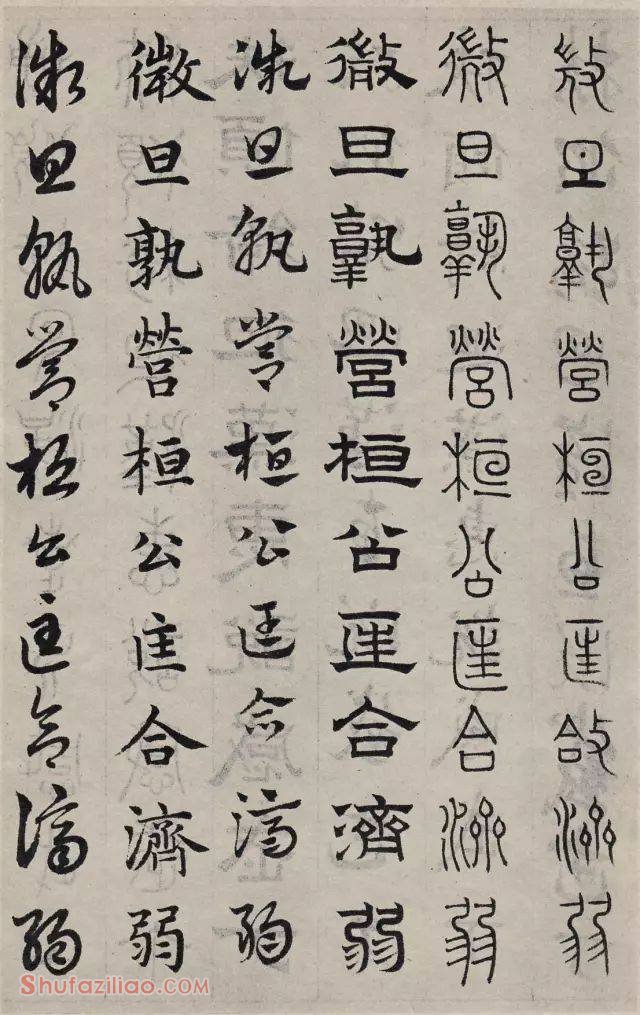 微旦孰營桓公匡合濟弱
微旦孰營桓公匡合濟弱
微旦孰營桓公匡合濟弱
微旦孰營桓公匡合濟弱
微旦孰營桓公匡合濟弱
微旦孰營桓公匡合濟弱
Shufaziliao.COM